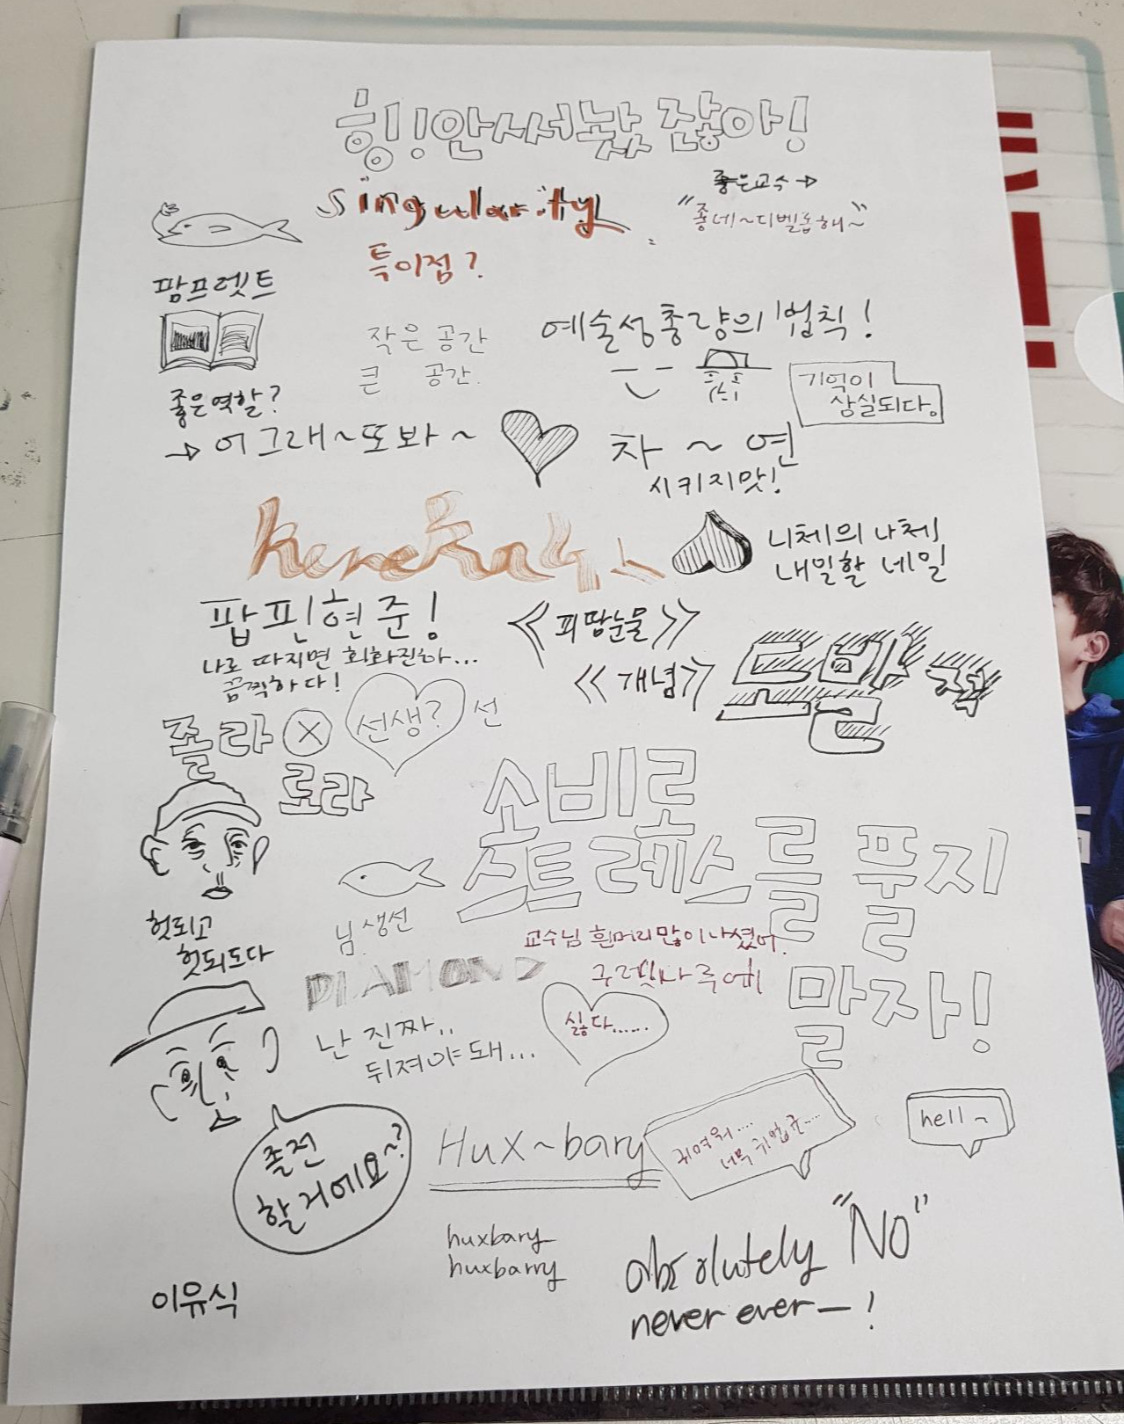 힝! 안서놨잖아!
singularity
특이점?
좋은교수→
"좋네~디벨롭해~"
팜프렛트
작은 공간
큰 공간.
예술성총량의 법칙!
기억이
상실되다.
좋은역할?
→ 어그래~또봐~
차~연
시키지맛!
니체의 나체
내일할 네일
팝핀현준!
나로 따지면 회화진하...
끔찍하다!
《피땀눈물》
《개념》
졸라 × 로라
선생? 선
소비로
스트레스를 풀지
말자!
님 생선
헛되고
헛되도다
교수님 흰머리많이나셨어.
구렛나루에
DIAMOND
난 진짜..
뒤져야돼...
싫다......
졸전
할거에요~?
Hux~bary
귀여워....
너무 귀엽군....
hell~
huxbary
huxbarry
absolutely "No"
never ever—!
이유식